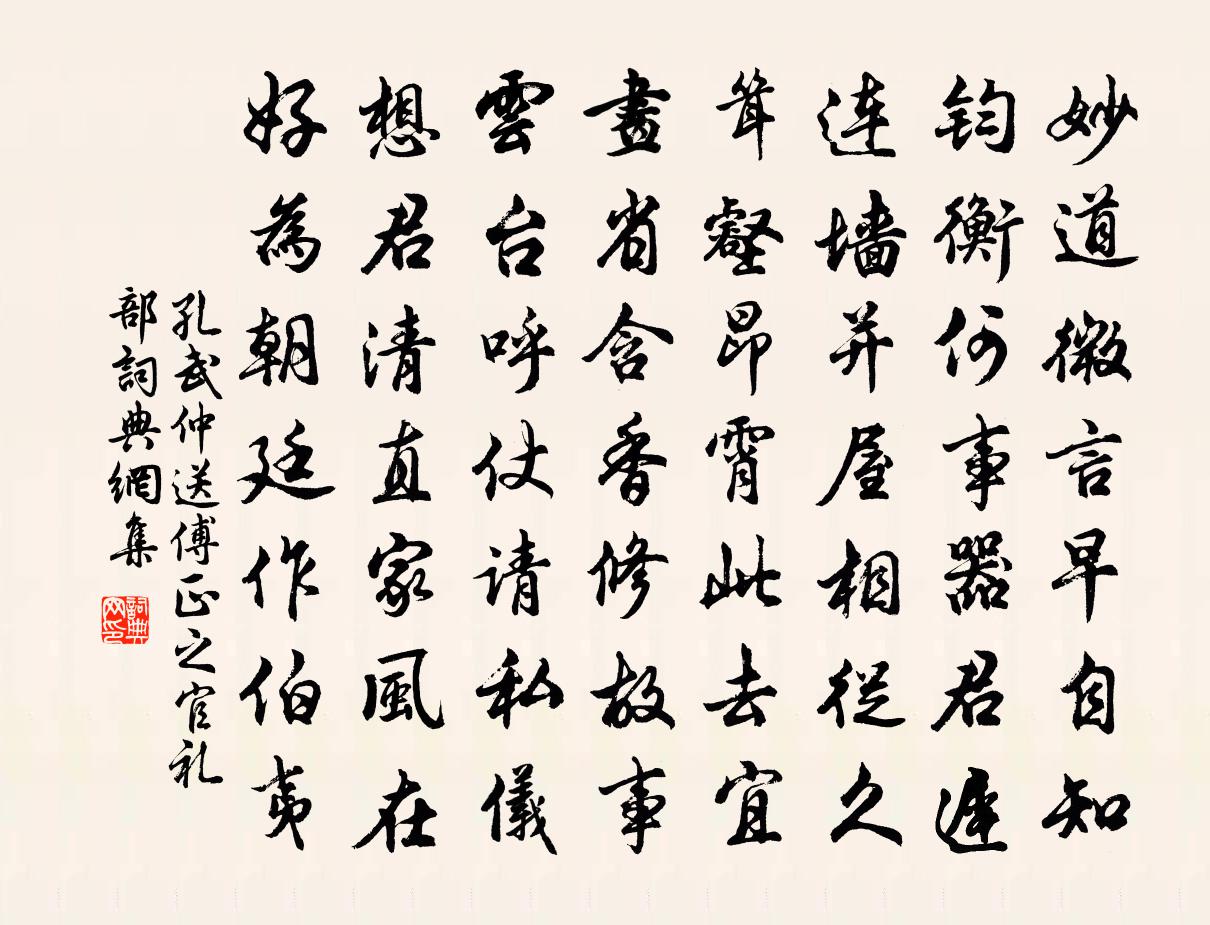 妙道微言早自知
钧衡何事器君遲
连墙并屋相從久
耸壑昂霄此去宜
畫省含香修故事
雲台呼仗请私儀
想君清直家風在
好為朝廷作伯夷
孔武仲送傅正之官礼
部詞典網集
詞典网印